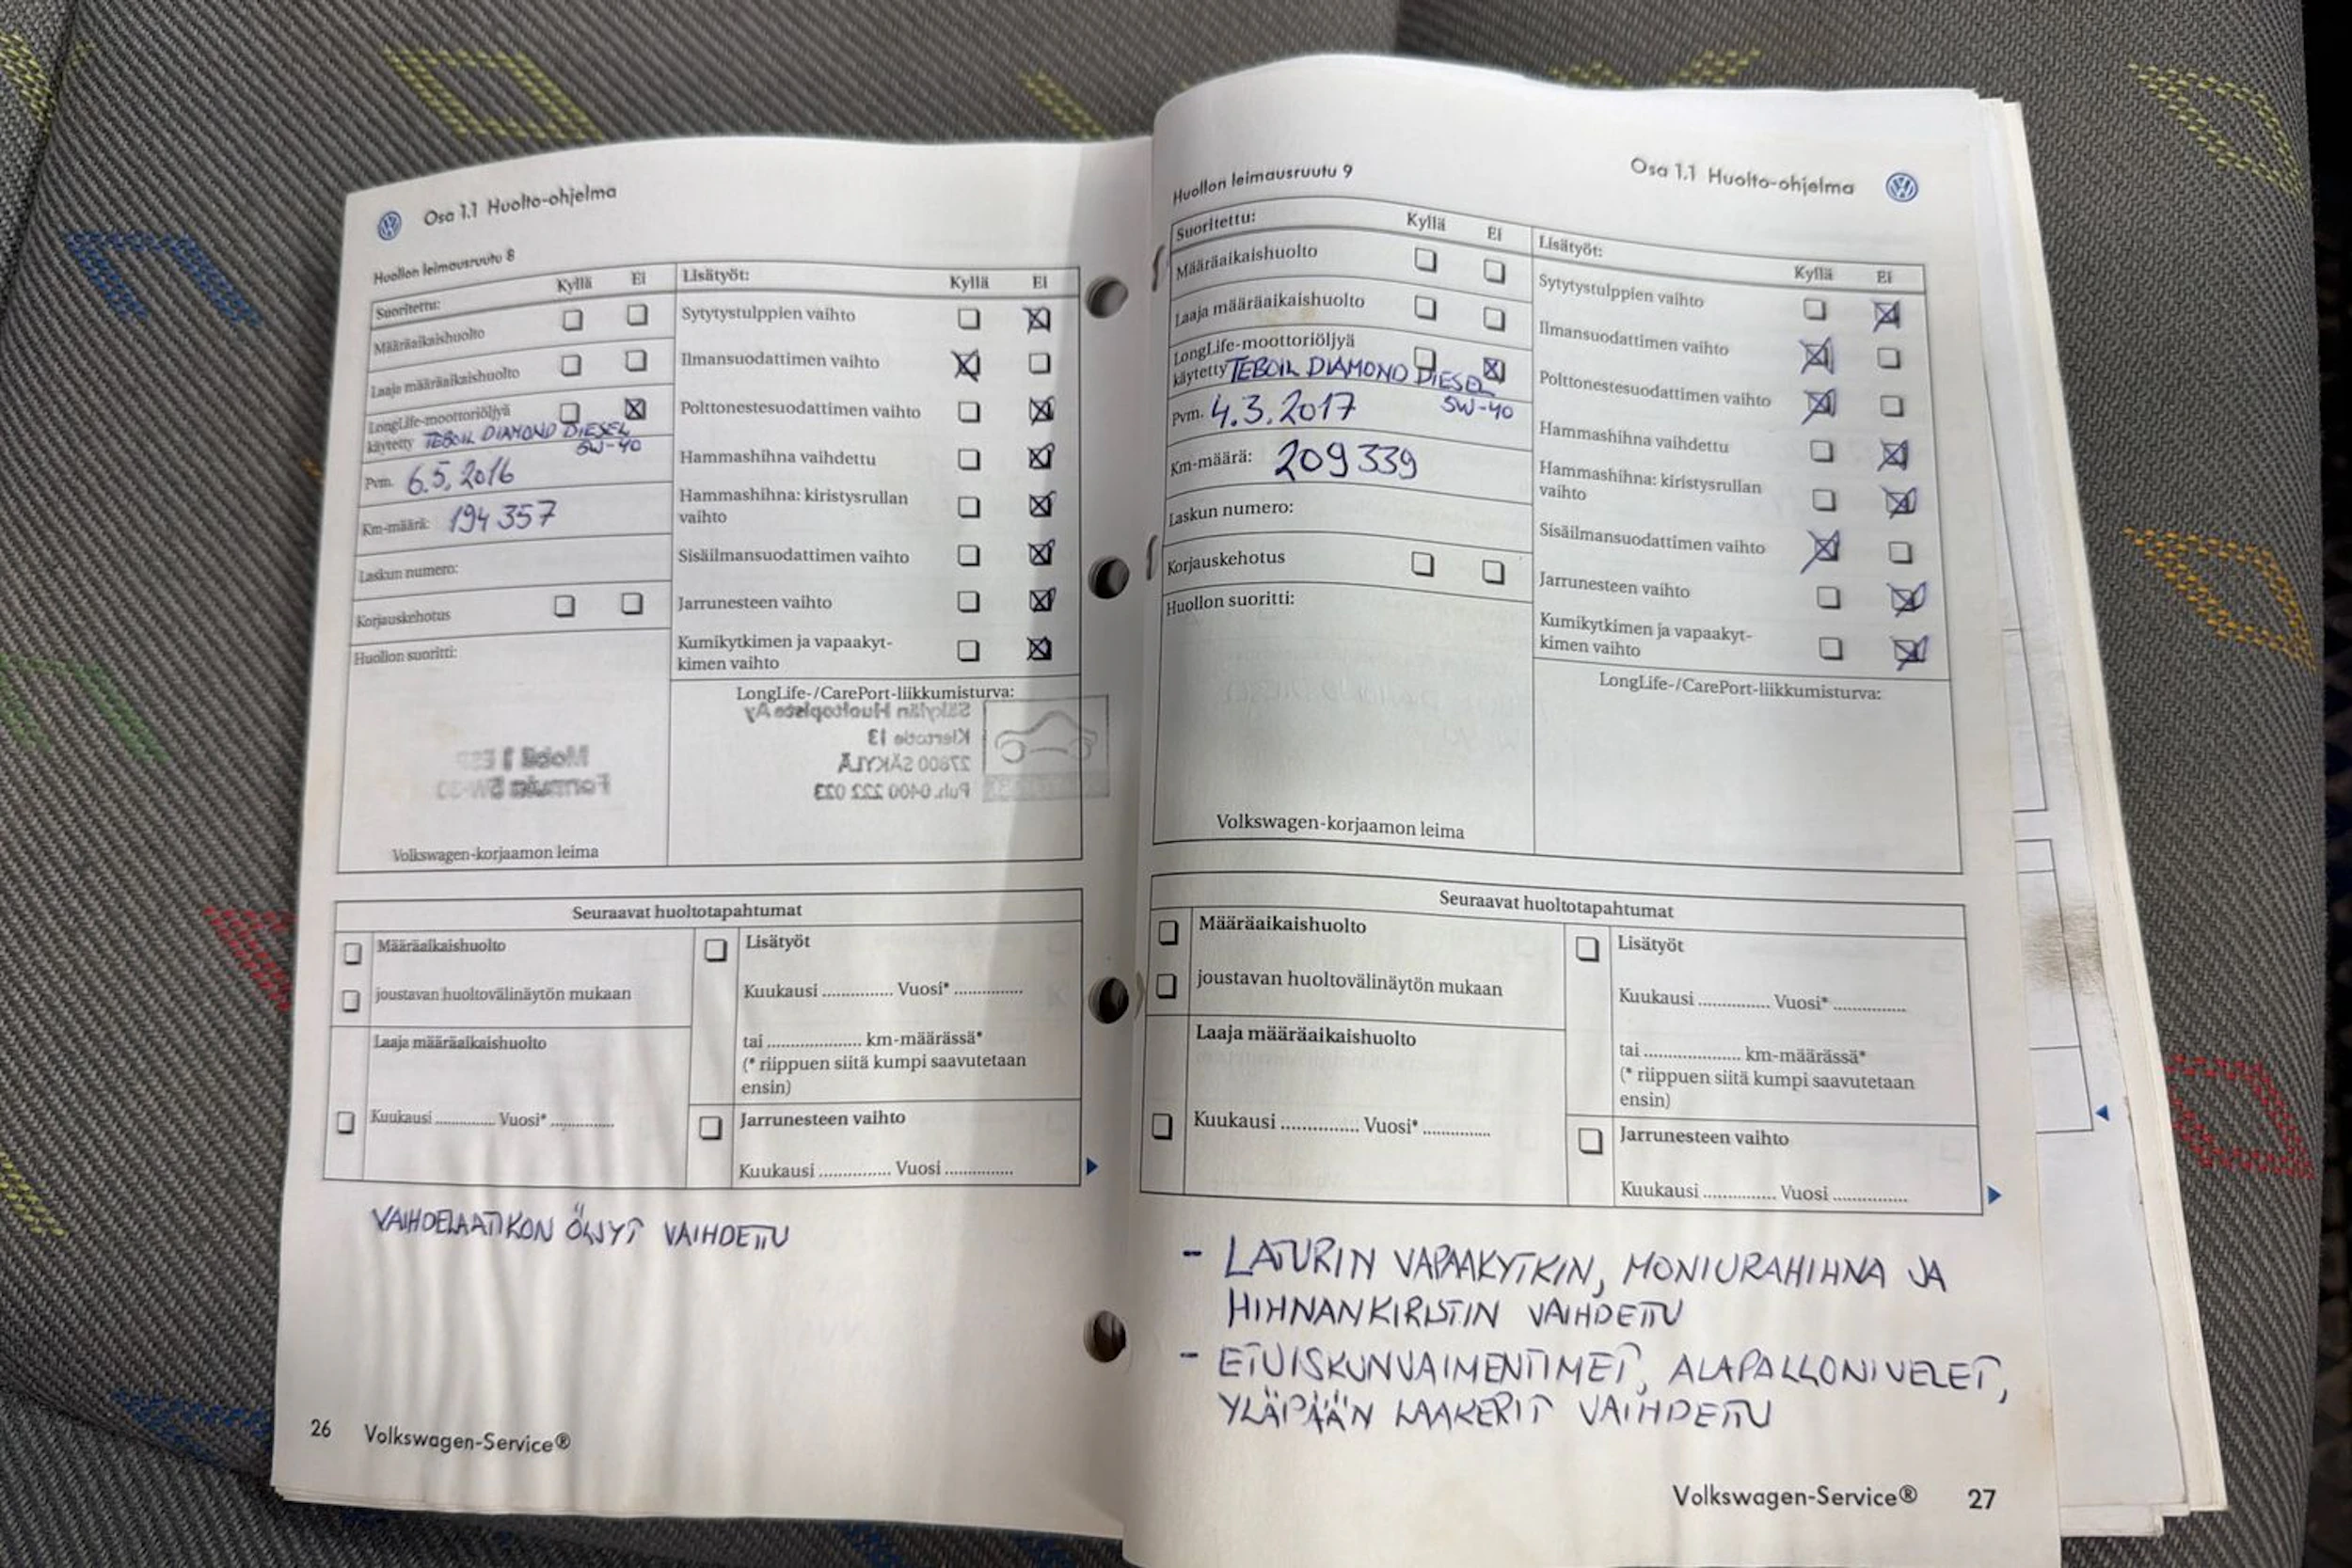 Osa 1.1 Huolto-ohjelma
Huollon leimausruutu 8
Suoritettu:
Kyllä
Ei
Määräaikaishuolto
Laaja määräaikaishuolto
LongLife-moottoriöljyä
käytetty TEBOIL DIAMOND DIESEL
5W-40
Pvm. 6.5.2016
Km-määrä: 194 357
Laskun numero:
Korjauskehotus
Huollon suoritti:
Volkswagen-korjaamon leima
Lisätyöt:
Kyllä
Ei
Sytytystulppien vaihto
Ilmansuodattimen vaihto
Polttonestesuodattimen vaihto
Hammashihna vaihdettu
Hammashihna: kiristysrullan
vaihto
Sisäilmansuodattimen vaihto
Jarrunesteen vaihto
Kumikytkimen ja vapaakyt-
kimen vaihto
LongLife-/CarePort-liikkumisturva:
Säkylän Huoltopiste Ay
Kiertotie 13
27800 SÄKYLÄ
Puh. 0400 222 023
Mobil 1 ESP
Formula
Seuraavat huoltotapahtumat
Määräaikaishuolto
joustavan huoltovälinäytön mukaan
Laaja määräaikaishuolto
Kuukausi .............. Vuosi* ..............
Lisätyöt
Kuukausi .............. Vuosi* ..............
tai .................... km-määrässä*
(* riippuen siitä kumpi saavutetaan
ensin)
Jarrunesteen vaihto
Kuukausi .............. Vuosi ..............
VAIHDELAATIKON ÖLJYT VAIHDETTU
26 Volkswagen-Service®
Huollon leimausruutu 9
Osa 1.1 Huolto-ohjelma
Suoritettu:
Kyllä
Ei
Määräaikaishuolto
Laaja määräaikaishuolto
LongLife-moottoriöljyä
käytetty TEBOIL DIAMOND DIESEL
5W-40
Pvm. 4.3.2017
Km-määrä: 209 339
Laskun numero:
Korjauskehotus
Huollon suoritti:
Volkswagen-korjaamon leima
Lisätyöt:
Kyllä
Ei
Sytytystulppien vaihto
Ilmansuodattimen vaihto
Polttonestesuodattimen vaihto
Hammashihna vaihdettu
Hammashihna: kiristysrullan
vaihto
Sisäilmansuodattimen vaihto
Jarrunesteen vaihto
Kumikytkimen ja vapaakyt-
kimen vaihto
LongLife-/CarePort-liikkumisturva:
Seuraavat huoltotapahtumat
Määräaikaishuolto
joustavan huoltovälinäytön mukaan
Laaja määräaikaishuolto
Kuukausi .............. Vuosi* ..............
Lisätyöt
Kuukausi .............. Vuosi* ..............
tai .................... km-määrässä*
(* riippuen siitä kumpi saavutetaan
ensin)
Jarrunesteen vaihto
Kuukausi .............. Vuosi ..............
- LATURIN VAPAAKYTKIN, MONIURAHIHNA JA
HIHNANKIRISTIN VAIHDETTU
- ETUISKUNVAIMENTIMET, ALAPALLONIVELET,
YLÄPÄÄN LAAKERIT VAIHDETTU
Volkswagen-Service® 27